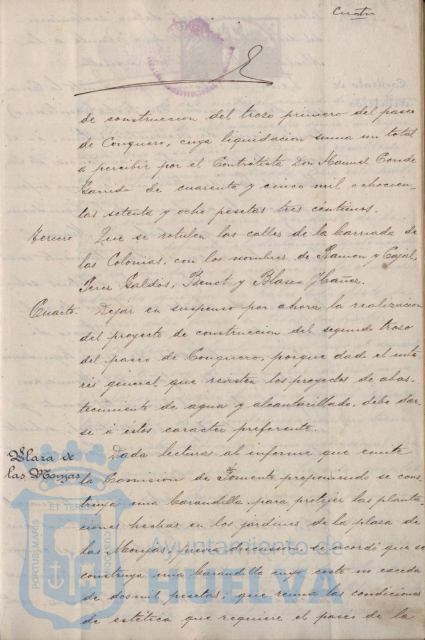 Cuatro
de construccion del trozo primero del paseo
de Conquero, cuya liquidacion suma un total
á percibir por el Contratista Don Manuel Conde
Garrido de cuarenta y cinco mil ochocien-
tas setenta y ocho pesetas tres céntimos.
Tercero Que se rotulen las calles de la barriada de
las Colonias, con los nombres de Ramon y Cajal,
Perez Galdós, Benot y Blasco Ybañez.
Cuarto. Dejar en suspenso por ahora la realizacion
del proyecto de construccion del segundo trozo
del paseo de Conquero, porque dado el inte-
rés general que revisten los proyectos de abas-
tecimiento de agua y alcantarillado, debe dar-
se á éstos carácter preferente.
Plaza de
las Monjas
Dada lectura al informe que emite
la Comision de Fomento proponiendo se cons-
truya una barandilla para protejer las planta-
ciones hechas en los jardines de la plaza de
las Monjas, previa discusion se acordó que se
construya una barandilla cuyo costo no exceda
de dosmil pesetas; que reuna las condiciones
de estética que requiere el paseo de la
Ayuntamiento de
HUELVA